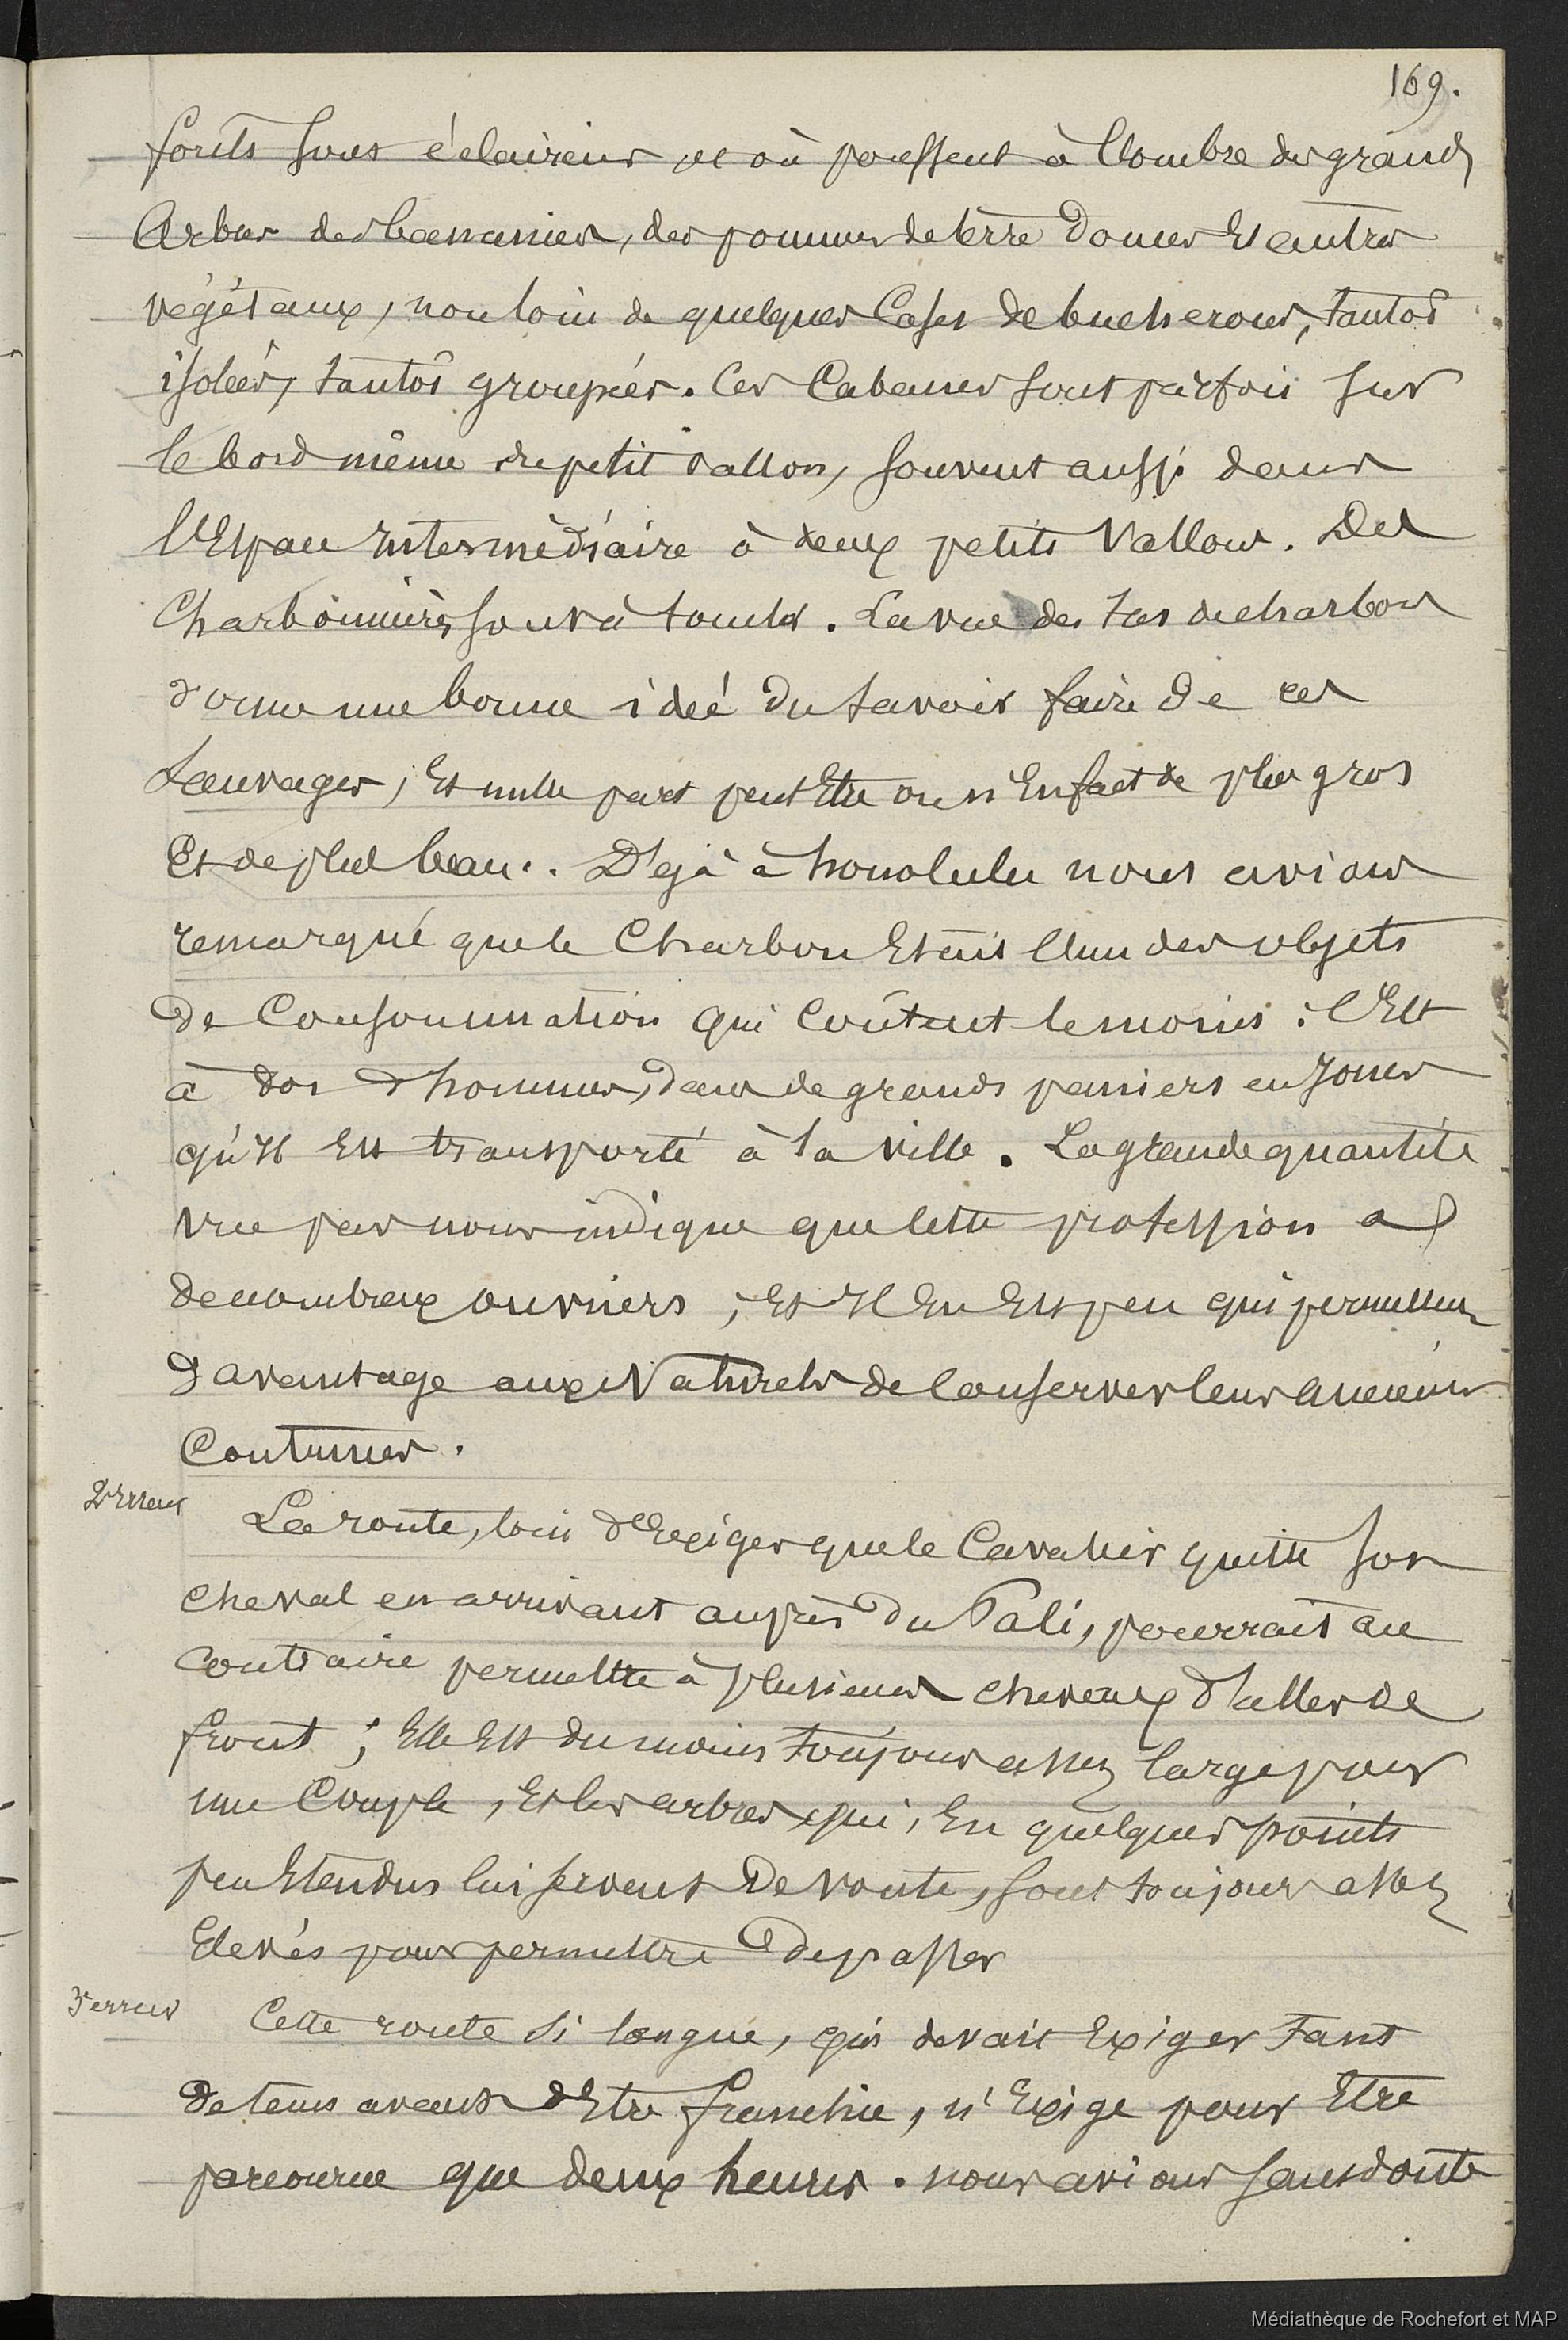 169.
forêts sous éclaircies et où poussent à l'ombre des grands
Arbres des bananiers, des pommes de terre Douces Et autres
végétaux, non loin de quelques Cases de bucherons, tantôt
isolées, tantôt groupées. Ces Cabanes sont parfois sur
le bord même du petit vallon, souvent aussi dans
l'Espace Intermédiaire à deux petits Vallons. Des
Charbonnières sont à toucher. La vue des tas de charbon
donne une bonne idée du savoir faire de ces
Sauvages, Et nulle part peut Etre on n'En fait de plus gros
Et de plus beau. Déjà à honolulu nous avions
remarqué que le Charbon Etait l'un des objets
de Consommation qui Coûtent le moins : C'Est
à dos d'hommes, dans de grands paniers en Joncs
qu'Il Est transporté à la ville. La grande quantité
vue par nous indique que cette profession a
de nombreux ouvriers ; Et Il En Est peu qui permettent
d'avantage aux Naturels de Conserver leurs Anciennes
Coutumes.
2e Erreur
La route, loin d'Exiger que le Cavalier quitte son
cheval en arrivant auprès du Pali, pourrait au
Contraire permettre à plusieurs chevaux d'aller de
front ; Elle Est du moins toujours assez large pour
une Couple, Et les arbres qui, En quelques points
peu Etendus lui servent De voute, sont toujours assez
Elevés pour permettre De passer
3e erreur
Cette route si longue, qui devait Exiger tant
de tems avant d'Etre franchie, n'Exige pour Etre
parcourue que deux heures. nous avions sans doute
Médiathèque de Rochefort et MAP